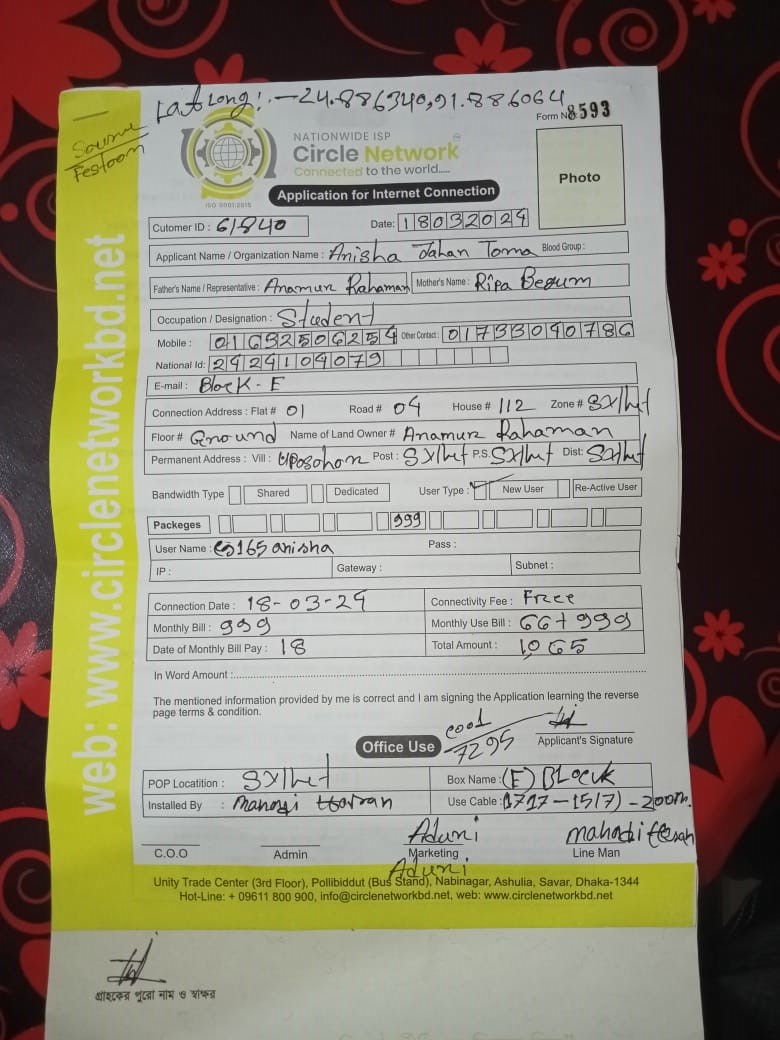 Lat Long:-24.886340,91.886064
Form No 8593
Source
Festoon
NATIONWIDE ISP
Circle Network
Connected to the world.....
ISO 9001:2015
Application for Internet Connection
Photo
Cutomer ID : 61840 Date: 18032024
Applicant Name / Organization Name : Anisha Jahan Toma Blood Group :
Father's Name / Representative : Anamur Rahaman Mother's Name : Ripa Begum
Occupation / Designation : Student
Mobile : 01632506254 Other Contact : 01733040786
National Id: 2424104079
E-mail : Block-E
Connection Address : Flat # 01 Road # 04 House # 112 Zone # Sylhet
Floor # Ground Name of Land Owner # Anamur Rahaman
Permanent Address : Vill : Uposohor Post : Sylhet P.S. Sylhet Dist: Sylhet
Bandwidth Type Shared Dedicated User Type : New User Re-Active User
Packeges 999
User Name : 165anisha Pass :
IP : Gateway : Subnet :
Connection Date : 18-03-24 Connectivity Fee : Free
Monthly Bill : 999 Monthly Use Bill : 66+999
Date of Monthly Bill Pay : 18 Total Amount : 1,065
In Word Amount :
The mentioned information provided by me is correct and I am signing the Application learning the reverse
page terms & condition.
Office Use
7295
Applicant's Signature
POP Locatition : Sylhet Box Name : (E) BLock
Installed By : Use Cable : -200m.
Aduni
C.O.O Admin Marketing Line Man
Aduni
Unity Trade Center (3rd Floor), Pollibiddut (Bus Stand), Nabinagar, Ashulia, Savar, Dhaka-1344
Hot-Line: + 09611 800 900, info@circlenetworkbd.net, web: www.circlenetworkbd.net
web: www.circlenetworkbd.net
গ্রাহকের পুরো নাম ও স্বাক্ষর